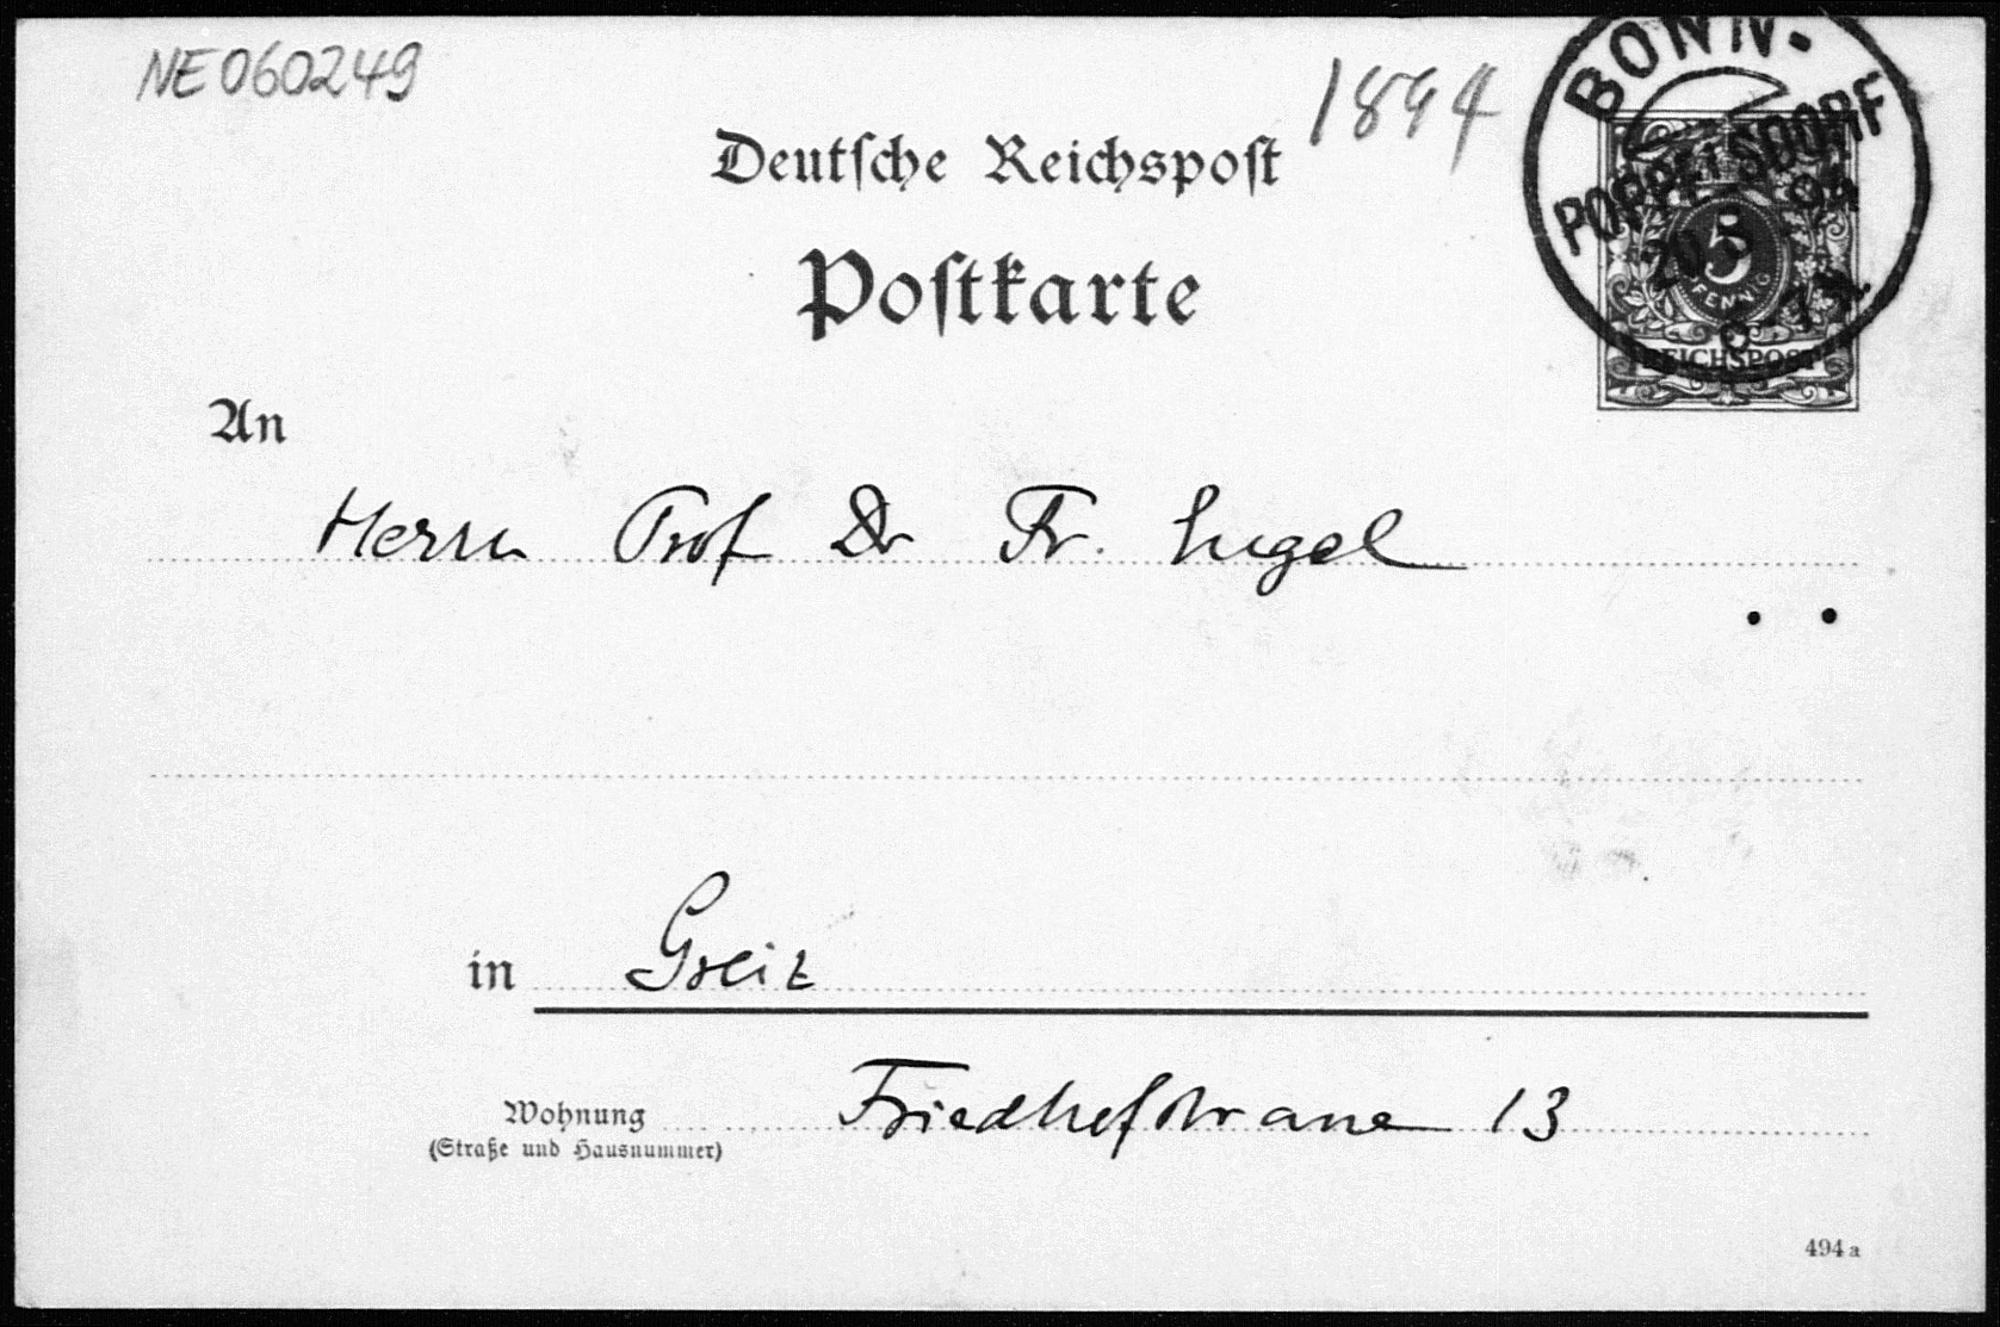 NE060249
1894
BONN.
POPPELSDORF
5
PFENNIG
REICHSPOST
Deutſche Reichspoſt
Poſtkarte
An
Herrn Prof Dr Fr. Engel
in Greiz
Wohnung Friedhofstrasse 13
(Straße und Hausnummer)
494a